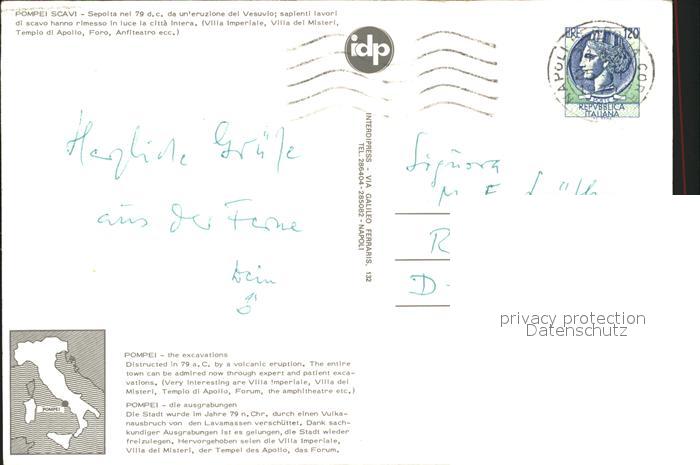 POMPEI SCAVI - Sepolta nel 79 d.c. da un'eruzione del Vesuvio; sapienti lavori
di scavo hanno rimesso in luce la città intera. (Villa Imperiale, Villa dei Misteri,
Tempio di Apollo, Foro, Anfiteatro ecc.)
idp
LIRE 120
REPVBBLICA
ITALIANA
NAPOLI
INTERDIPRESS - VIA GALILEO FERRARIS, 132
TEL. 286404 - 285082 - NAPOLI
Herzliche Grüße
aus der Ferne
Dein
Signora
R
D-
privacy protection
Datenschutz
POMPEI
POMPEI - the excavations
Distructed in 79 a. C. by a volcanic eruption. The entire
town can be admired now through expert and patient exca-
vations. (Very interesting are Villa Imperiale, Villa dei
Misteri, Tempio di Apollo, Forum, the amphitheatre etc.)
POMPEI - die ausgrabungen
Die Stadt wurde im Jahre 79 n. Chr. durch einen Vulka-
nausbruch von den Lavamassen verschüttet. Dank sach-
kundiger Ausgrabungen ist es gelungen, die Stadt wieder
freizulegen. Hervorgehoben seien die Villa Imperiale,
Villa dei Misteri, der Tempel des Apollo, das Forum.